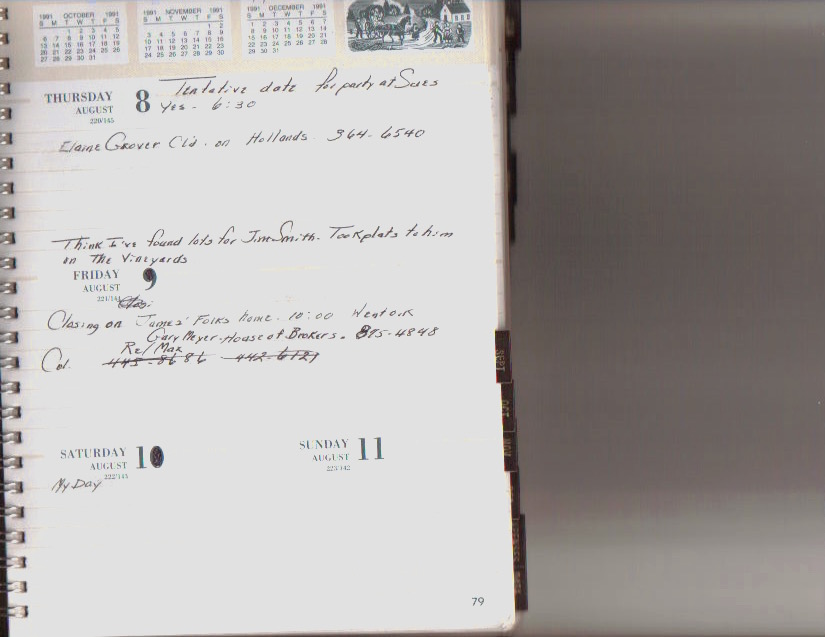 1991 OCTOBER 1991
S M T W T F S
1 2 3 4 5
6 7 8 9 10 11 12
13 14 15 16 17 18 19
20 21 22 23 24 25 26
27 28 29 30 31
1991 NOVEMBER 1991
S M T W T F S
1 2
3 4 5 6 7 8 9
10 11 12 13 14 15 16
17 18 19 20 21 22 23
24 25 26 27 28 29 30
1991 DECEMBER 1991
S M T W T F S
1 2 3 4 5 6 7
8 9 10 11 12 13 14
15 16 17 18 19 20 21
22 23 24 25 26 27 28
29 30 31
THURSDAY 8
AUGUST
220/145
Tentative date for party at Sues
Yes - 6:30
Elaine Grover Cld. on Hollands 364-6540
Think I've found lots for Jim Smith. Took plats to him
on The Vineyards
FRIDAY 9
AUGUST
221/144
Closing on James' Folks home. 10:00 Went ok
Gary Meyer-House of Brokers. 875-4848
Re/Max
Col. 445-8686 442-6121
SATURDAY 10
AUGUST
222/143
My Day
SUNDAY 11
AUGUST
223/142
SEPT
OCT
NOV
79